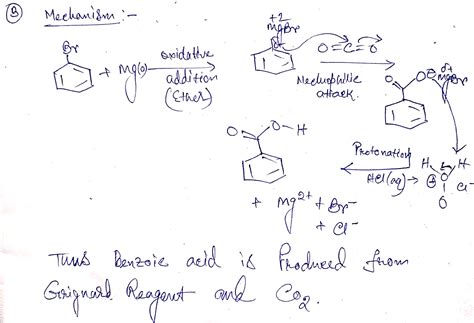 ③ Mechanism :-
Br
+ Mg(0)
oxidative
addition
(Ether)
+2
MgBr
O=C=O
Nucleophilic
attack.
O
O⊖
MgBr
δ+
O
O-H
Protonation
HCl(aq)
H
H
O
⊕
Cl-
+ Mg2+ + Br-
+ Cl-
Thus benzoic acid is Produced from
Grignard Reagent and CO2.